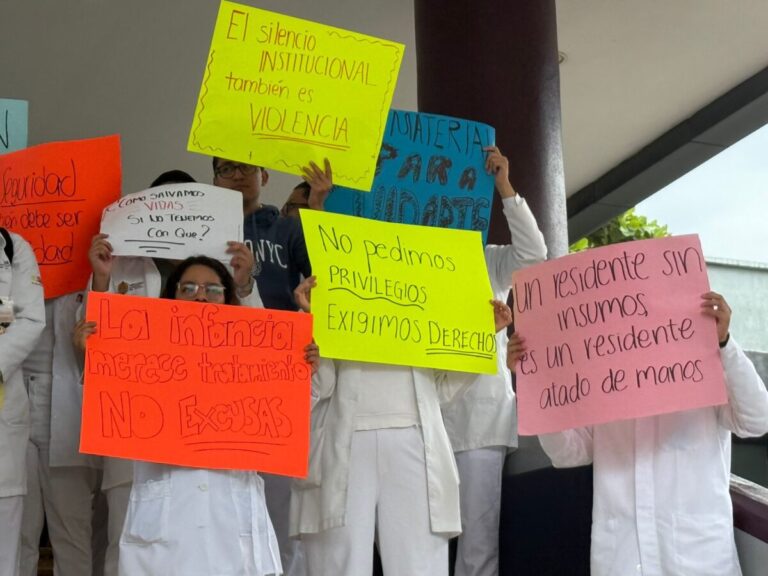 El silencio
INSTITUCIONAL
también es
VIOLENCIA
N
MATERIAL
PARA
Seguridad
debe ser
¿Como SALVAMOS
VIDAS
Si No Tenemos
Con Que?
NYC
No pedimos
PRIVILEGIOS
EXIGIMOS DERECHOS
Un residente sin
insumos,
es un residente
atado de manos
La infancia
merece tratamiento
NO EXCUSAS